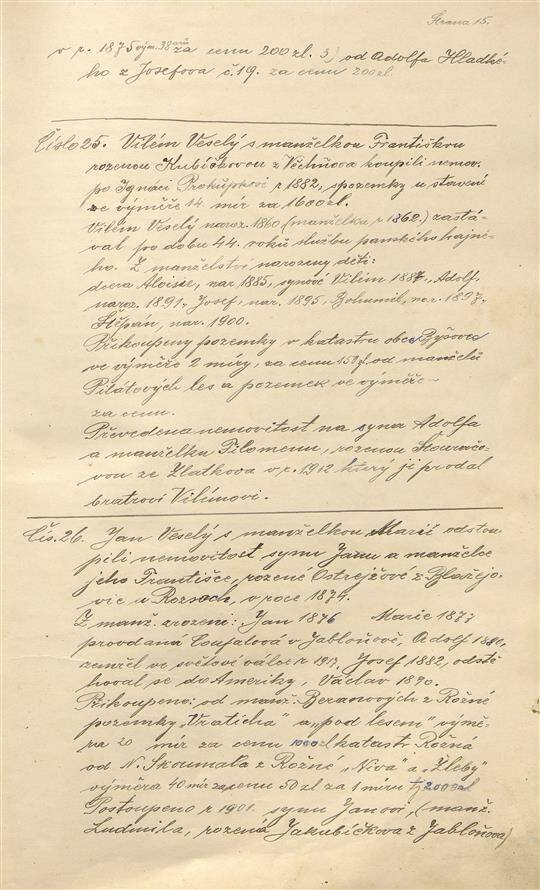 Strana 15.
v r. 1875 vým. 38 arů za cenu 200 zl. 3) od Adolfa Hladké-
ho z Josefova č. 19. za cenu 200 zl.
Číslo 25. Vilém Veselý s manželkou Františkou
rozenou Kubíčkovou z Věchnova koupili nemov.
po Ignáci Prokůpkovi r 1882, s pozemky u stavení
ve výměře 14 mír za 1600 zl.
Vilém Veselý naroz. 1860 (manželka r 1862.) zastá-
val po dobu 44. roků službu panského hajné-
ho. Z manželství narozeny děti:
dcera Aloisie, nar 1885, synové Vilém 1887., Adolf,
naroz. 1891., Josef, nar. 1895, Bohumil, nar. 1897.,
Štěpán, nar. 1900.
Přikoupeny pozemky v katastru obce Byšovec
ve výměře 2 míry, za cenu 150 zl. od manželů
Pilátových les a pozemek ve výměře –
za cenu.
Převedena nemovitost na syna Adolfa
a manželku Filomenu, rozenou
vou ze Zlatkova v r. 1912 který ji prodal
bratrovi Vilémovi.
Čís. 26. Jan Veselý s manželkou Marií odstou-
pili nemovitost synu Janu a manželce
jeho Františce, rozené Ostrejžové z Blažejo-
vic u Rozsoch, v roce 1874.
Z manž. zrozeni: Jan 1876 Marie 1877
provdaná Coufalová v Jabloňově, Adolf
zemřel ve světové válce r 1917, Josef 1882, odstě-
hoval se do Ameriky, Václav 1890.
Přikoupeno: od manž. Beranových z Rožné
pozemky „Vraticha" a „pod lesem" výmě-
ra 20 mír za cenu 1000 zl katastr Rožná
od N. Skoumala z Rožné „Niva" a „Žleby"
výměra 40 mír za cenu 50 zl za 1 míru tj 2000 zl
Postoupeno r 1901. synu Janovi, (manž.
Ludmila, rozená Jakubíčkova z Jabloňova)